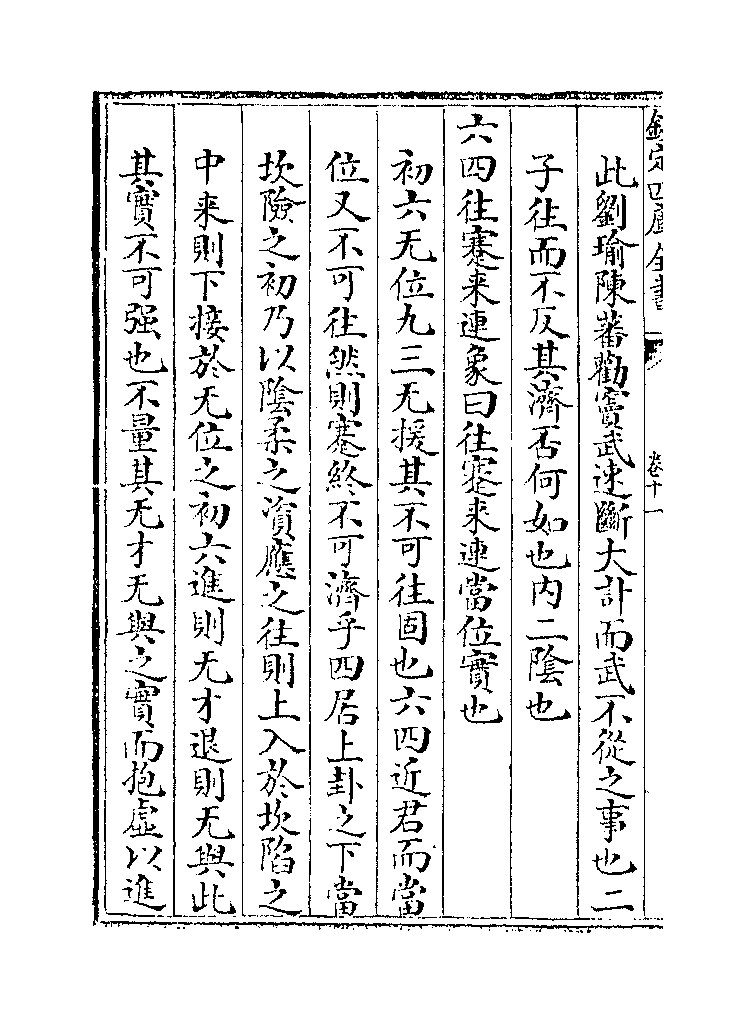 欽定四庫全書
卷十一
此劉瑜陳蕃勸竇武速斷大計而武不從之事也二
子往而不反其濟否何如也内二隂也
六四往蹇来連象曰往蹇来連當位實也
初六无位九三无援其不可往固也六四近君而當
位又不可往然則蹇終不可濟乎四居上卦之下當
坎險之初乃以隂柔之資應之往則上入於坎陷之
中来則下接於无位之初六進則无才退則无與此
其實不可强也不量其无才无與之實而抱虚以進